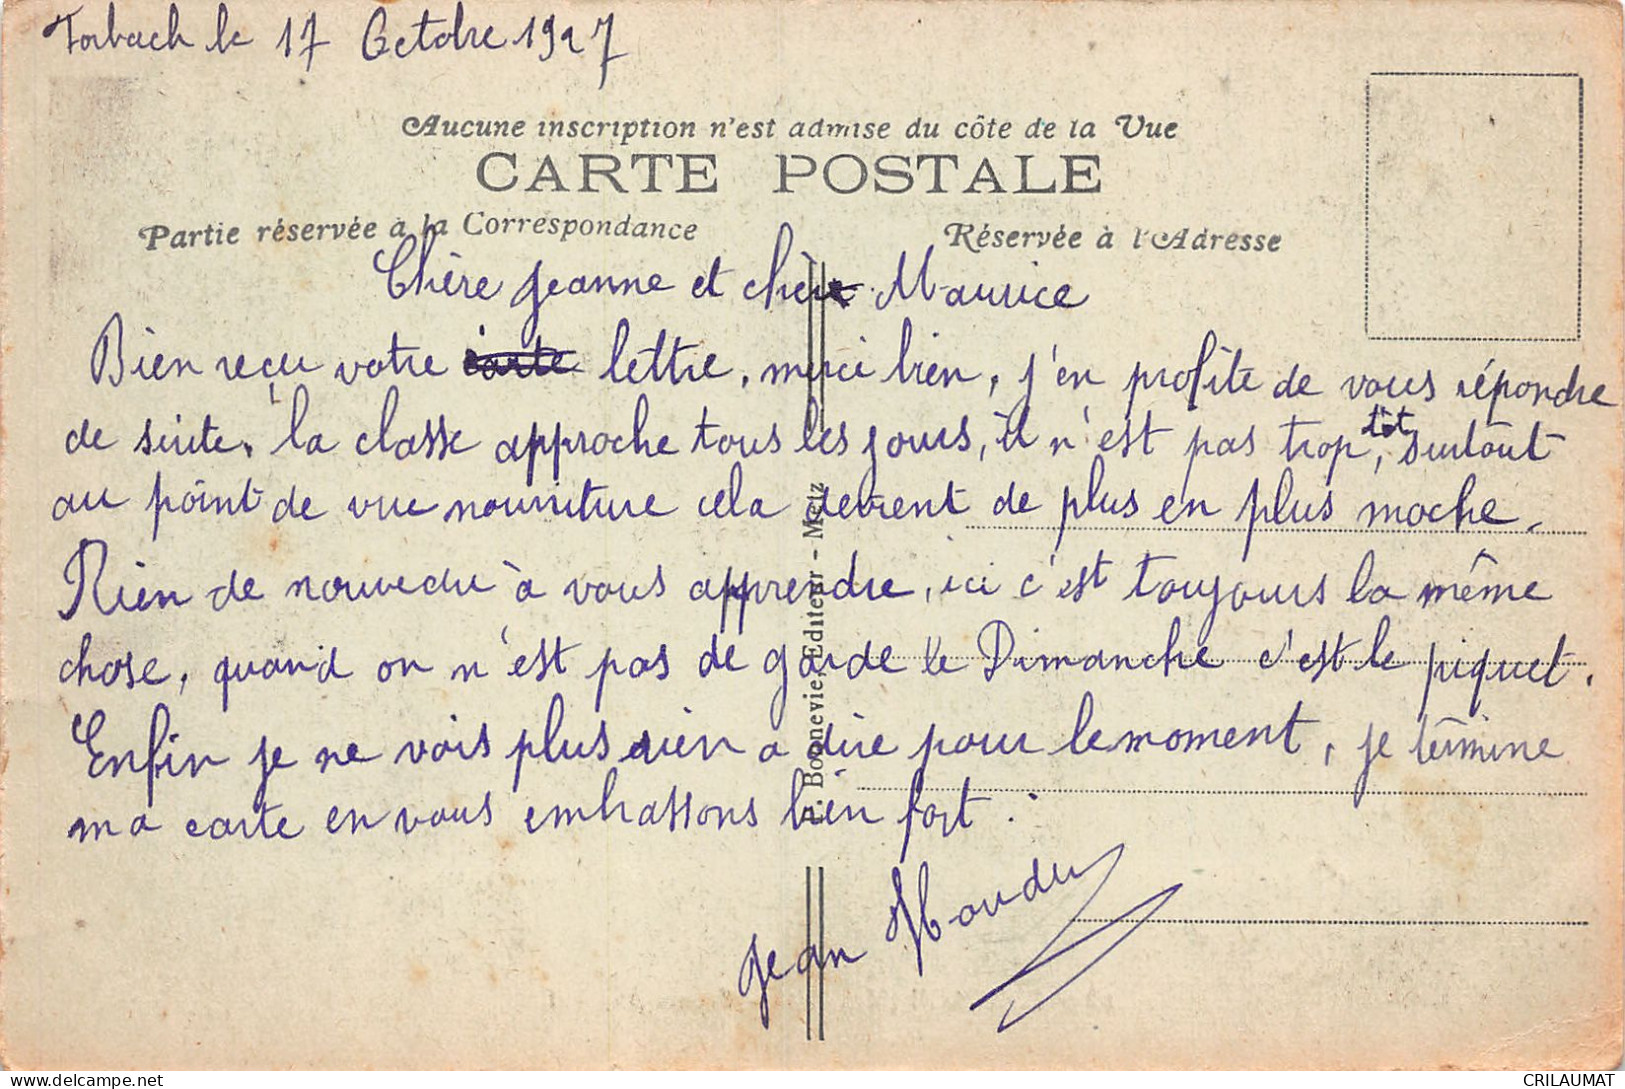 Forbach le 17 Octobre 1927
Aucune inscription n'est admise du côte de la Vue
CARTE POSTALE
Partie réservée à la Correspondance
Réservée à l'Adresse
Chère Jeanne et cher Maurice
Bien reçu votre carte lettre, merci bien, j'en profite de vous répondre
de suite, la classe approche tous les jours, il n'est pas trop tôt, surtout
au point de vue nourriture cela devient de plus en plus moche.
Rien de nouveau à vous apprendre, ici c'est toujours la même
chose, quand on n'est pas de garde le Dimanche c'est le piquet.
Enfin je ne vois plus rien a dire pour le moment, je termine
ma carte en vous embrassons bien fort.
Jean
Bonnevie, Editeur - Metz
CRILAUMAT